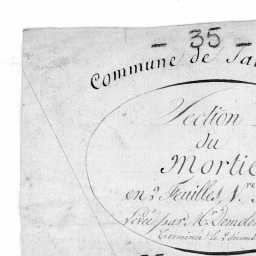 - 35 -
Commune de
Section
du
Mortie
en 2 Feuilles, 1.re
Levée par Mr.
Terminée le 2